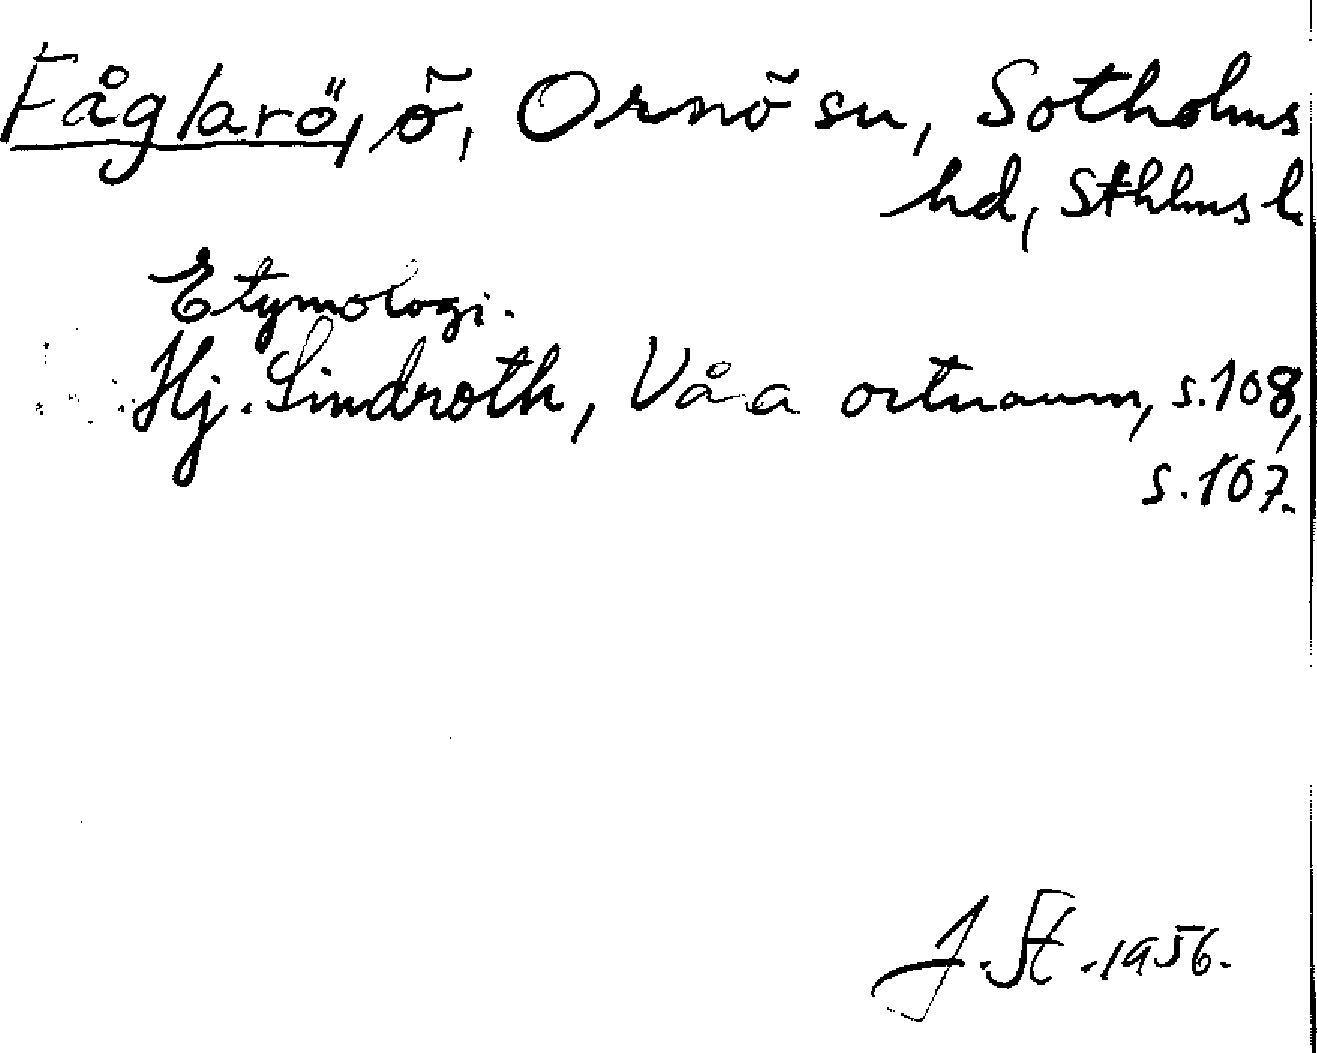 Fåglarö, ö, Ornö sn, Sotholms
hd, Sthlms l.
Etymologi.
Hj. Lindroth, Våra ortnamn, s. 108,
s. 107.
J. St. 1956.